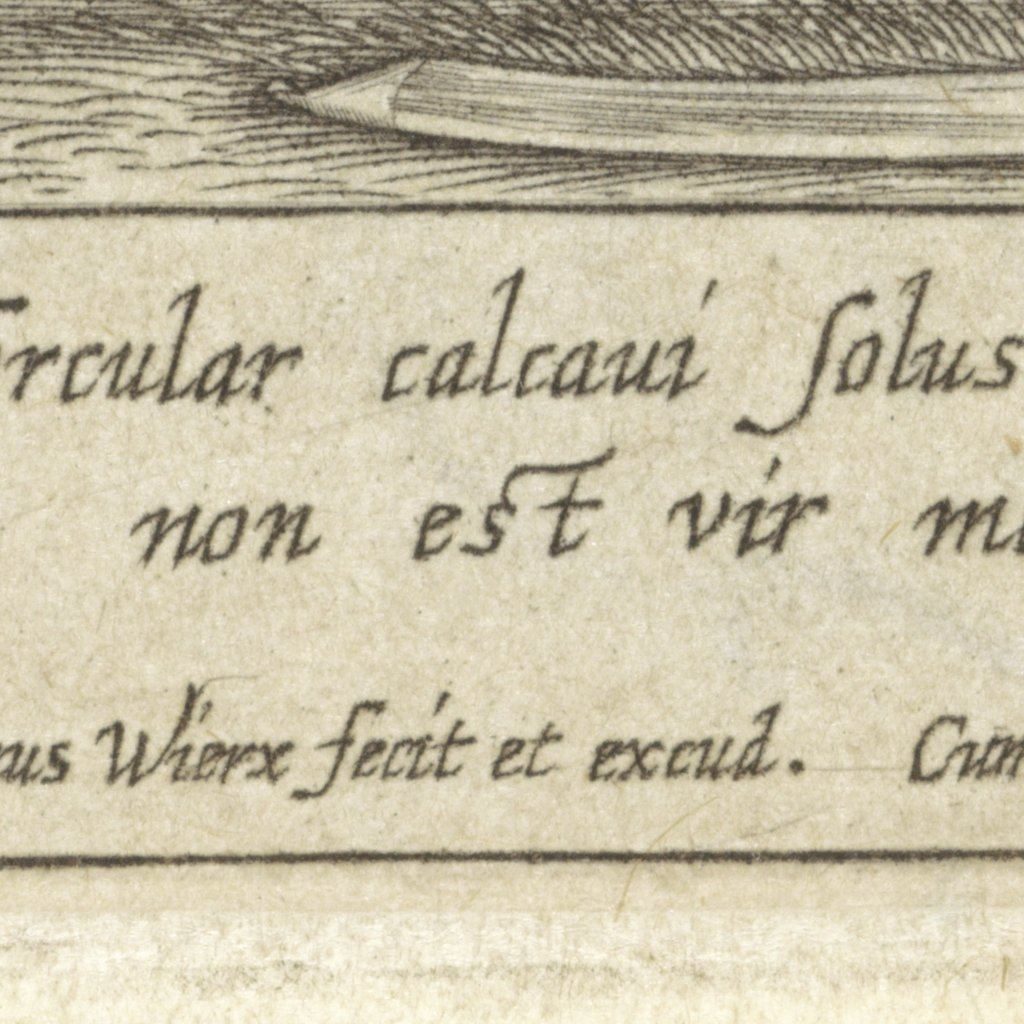 rcular calcaui ſolus
non est vir
Wierx fecit et excud. Cum